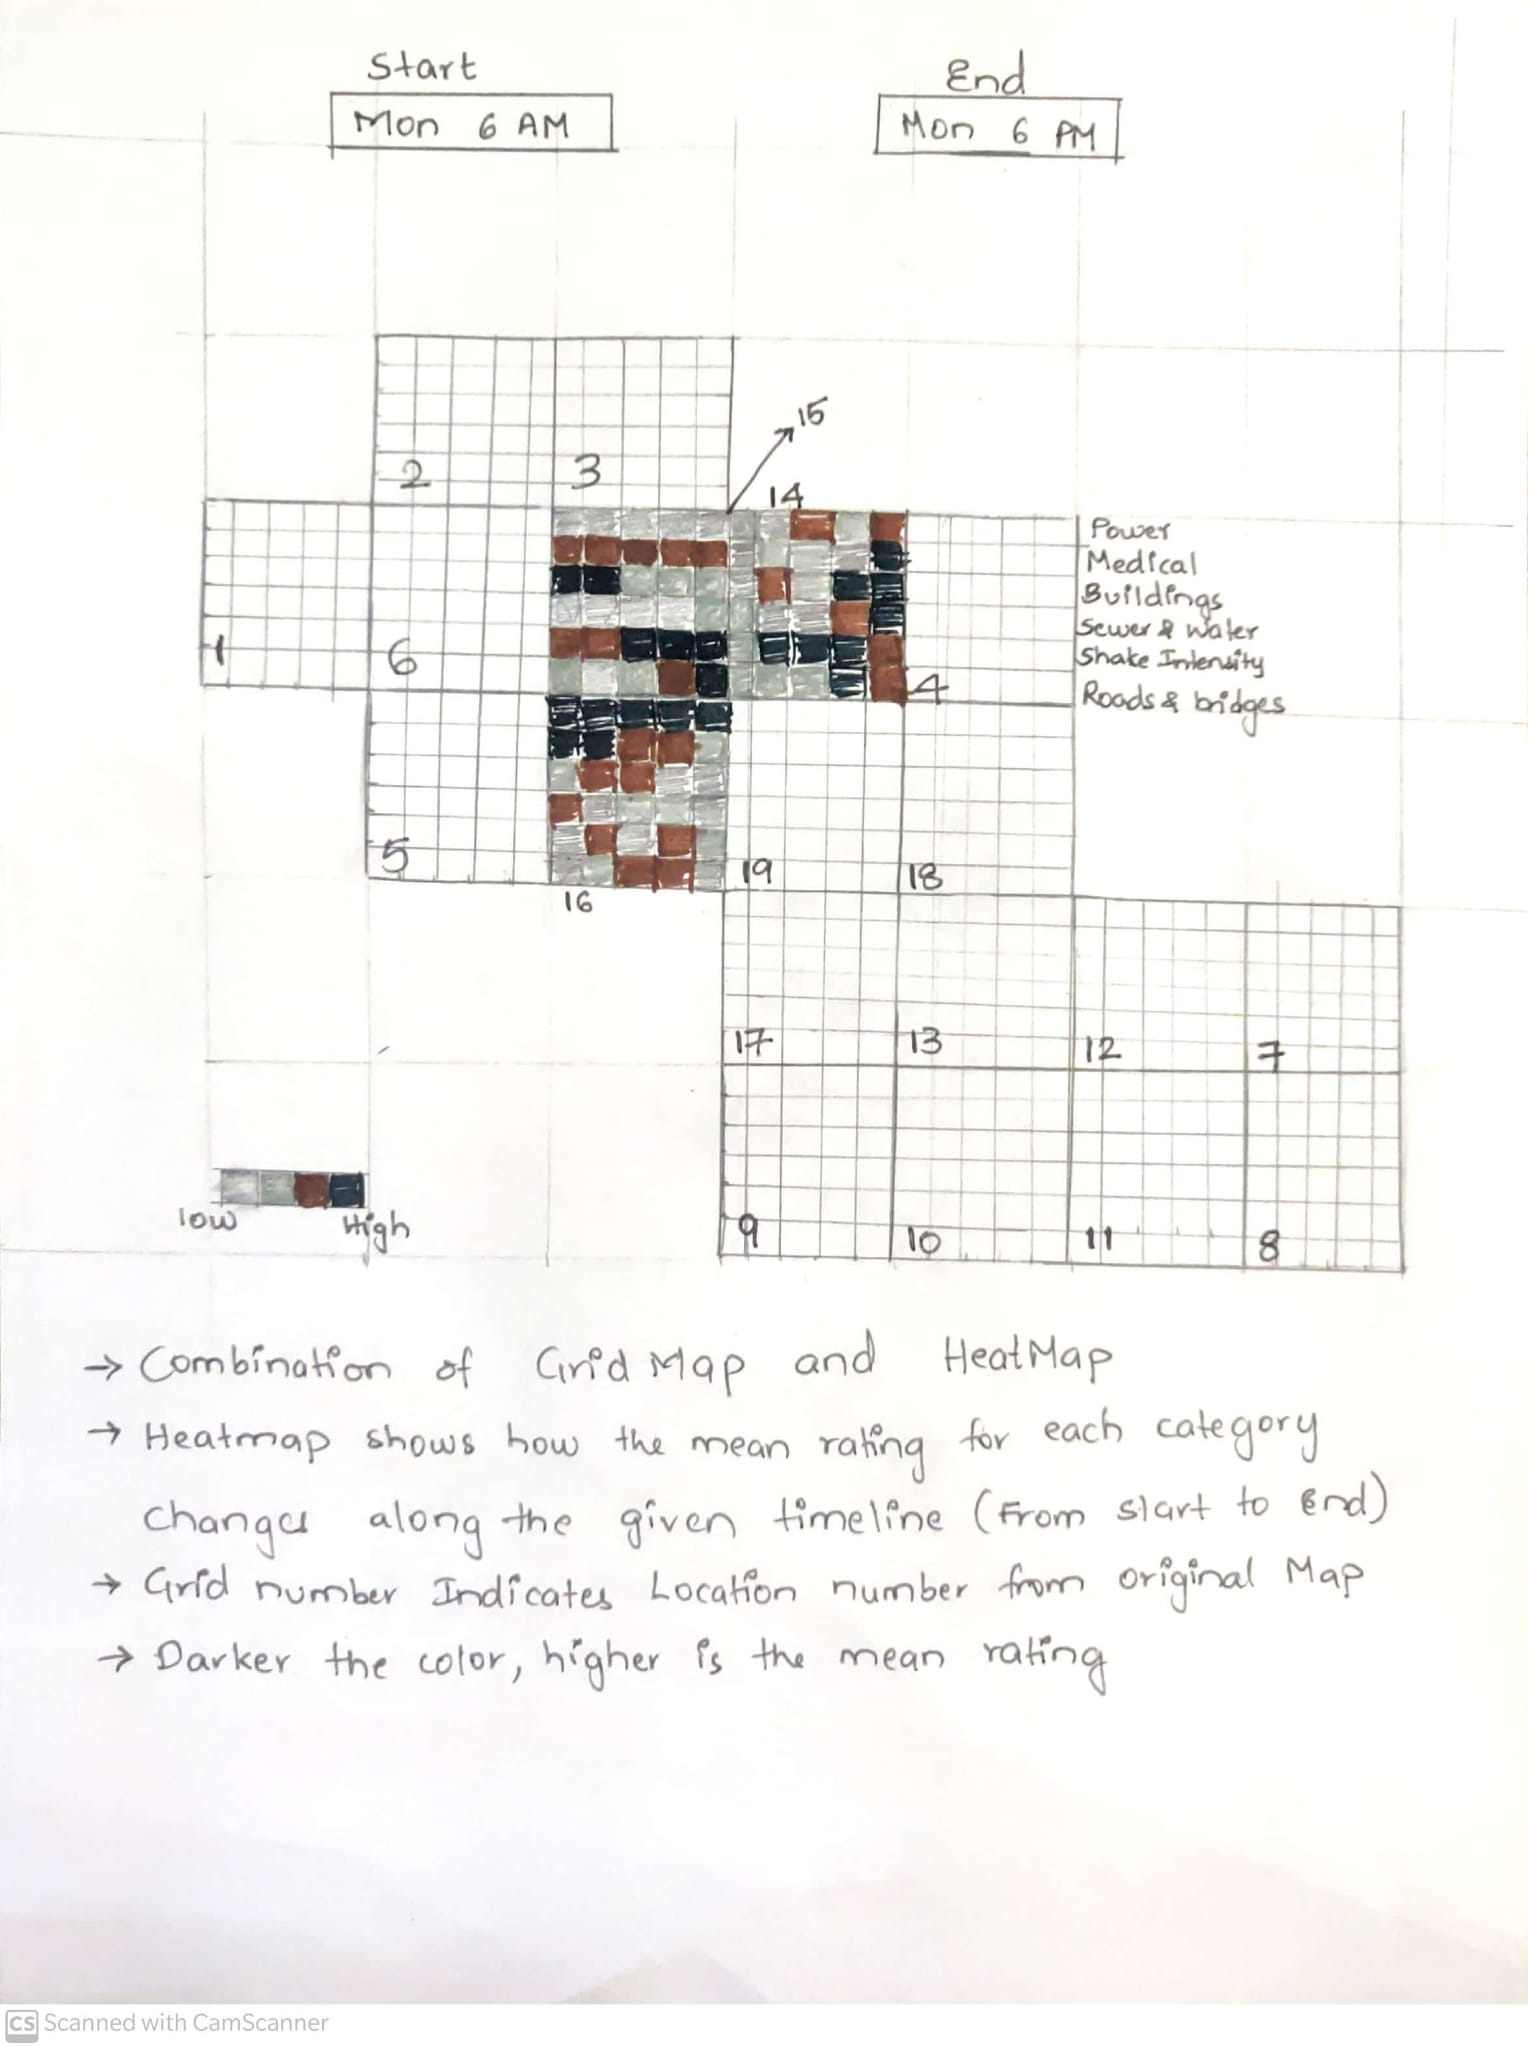 Start
End
Mon 6 AM
Mon 6 PM
15
2
3
14
Power
Medical
Buildings
Sewer & Water
Shake Intensity
Roads & bridges
1
6
4
5
16
19
18
17
13
12
7
low
High
9
10
11
8
→ Combination of Grid Map and HeatMap
→ Heatmap shows how the mean rating for each category
changes along the given timeline (From start to End)
→ Grid number Indicates Location number from original Map
→ Darker the color, higher is the mean rating
CS Scanned with CamScanner